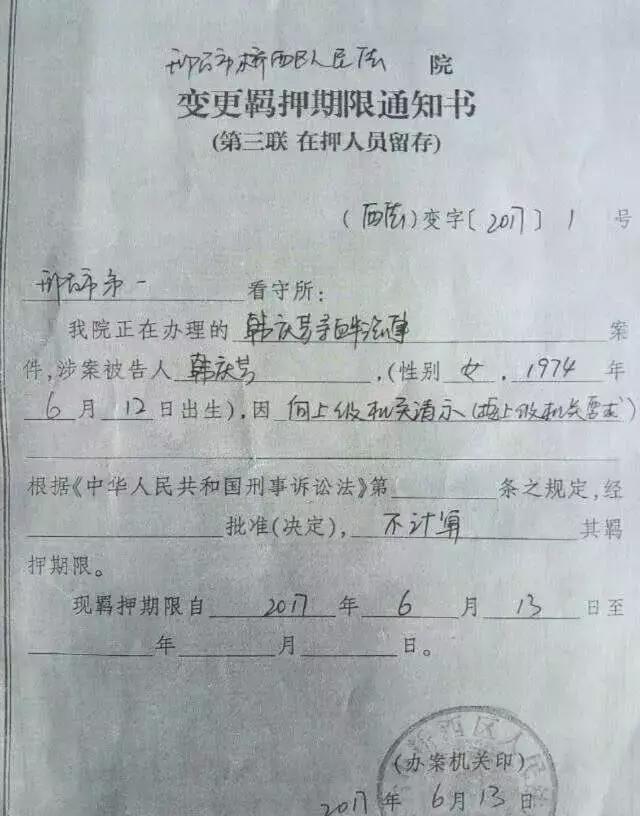 邢台市桥西区人民法 院
变更羁押期限通知书
(第三联 在押人员留存)
(西法)变字[2017] 1 号
邢台市第一 看守所:
我院正在办理的 韩庆芳寻衅滋事 案
件,涉案被告人 韩庆芳 ,(性别 女 , 1974 年
6 月 12 日出生),因 向上级机关请示(按上级机关要求)
根据《中华人民共和国刑事诉讼法》第 条之规定,经
批准(决定), 不计算 其羁
押期限。
现羁押期限自 2017 年 6 月 13 日至
年 月 日。
桥西区人民
(办案机关印)
2017 年 6 月 13 日